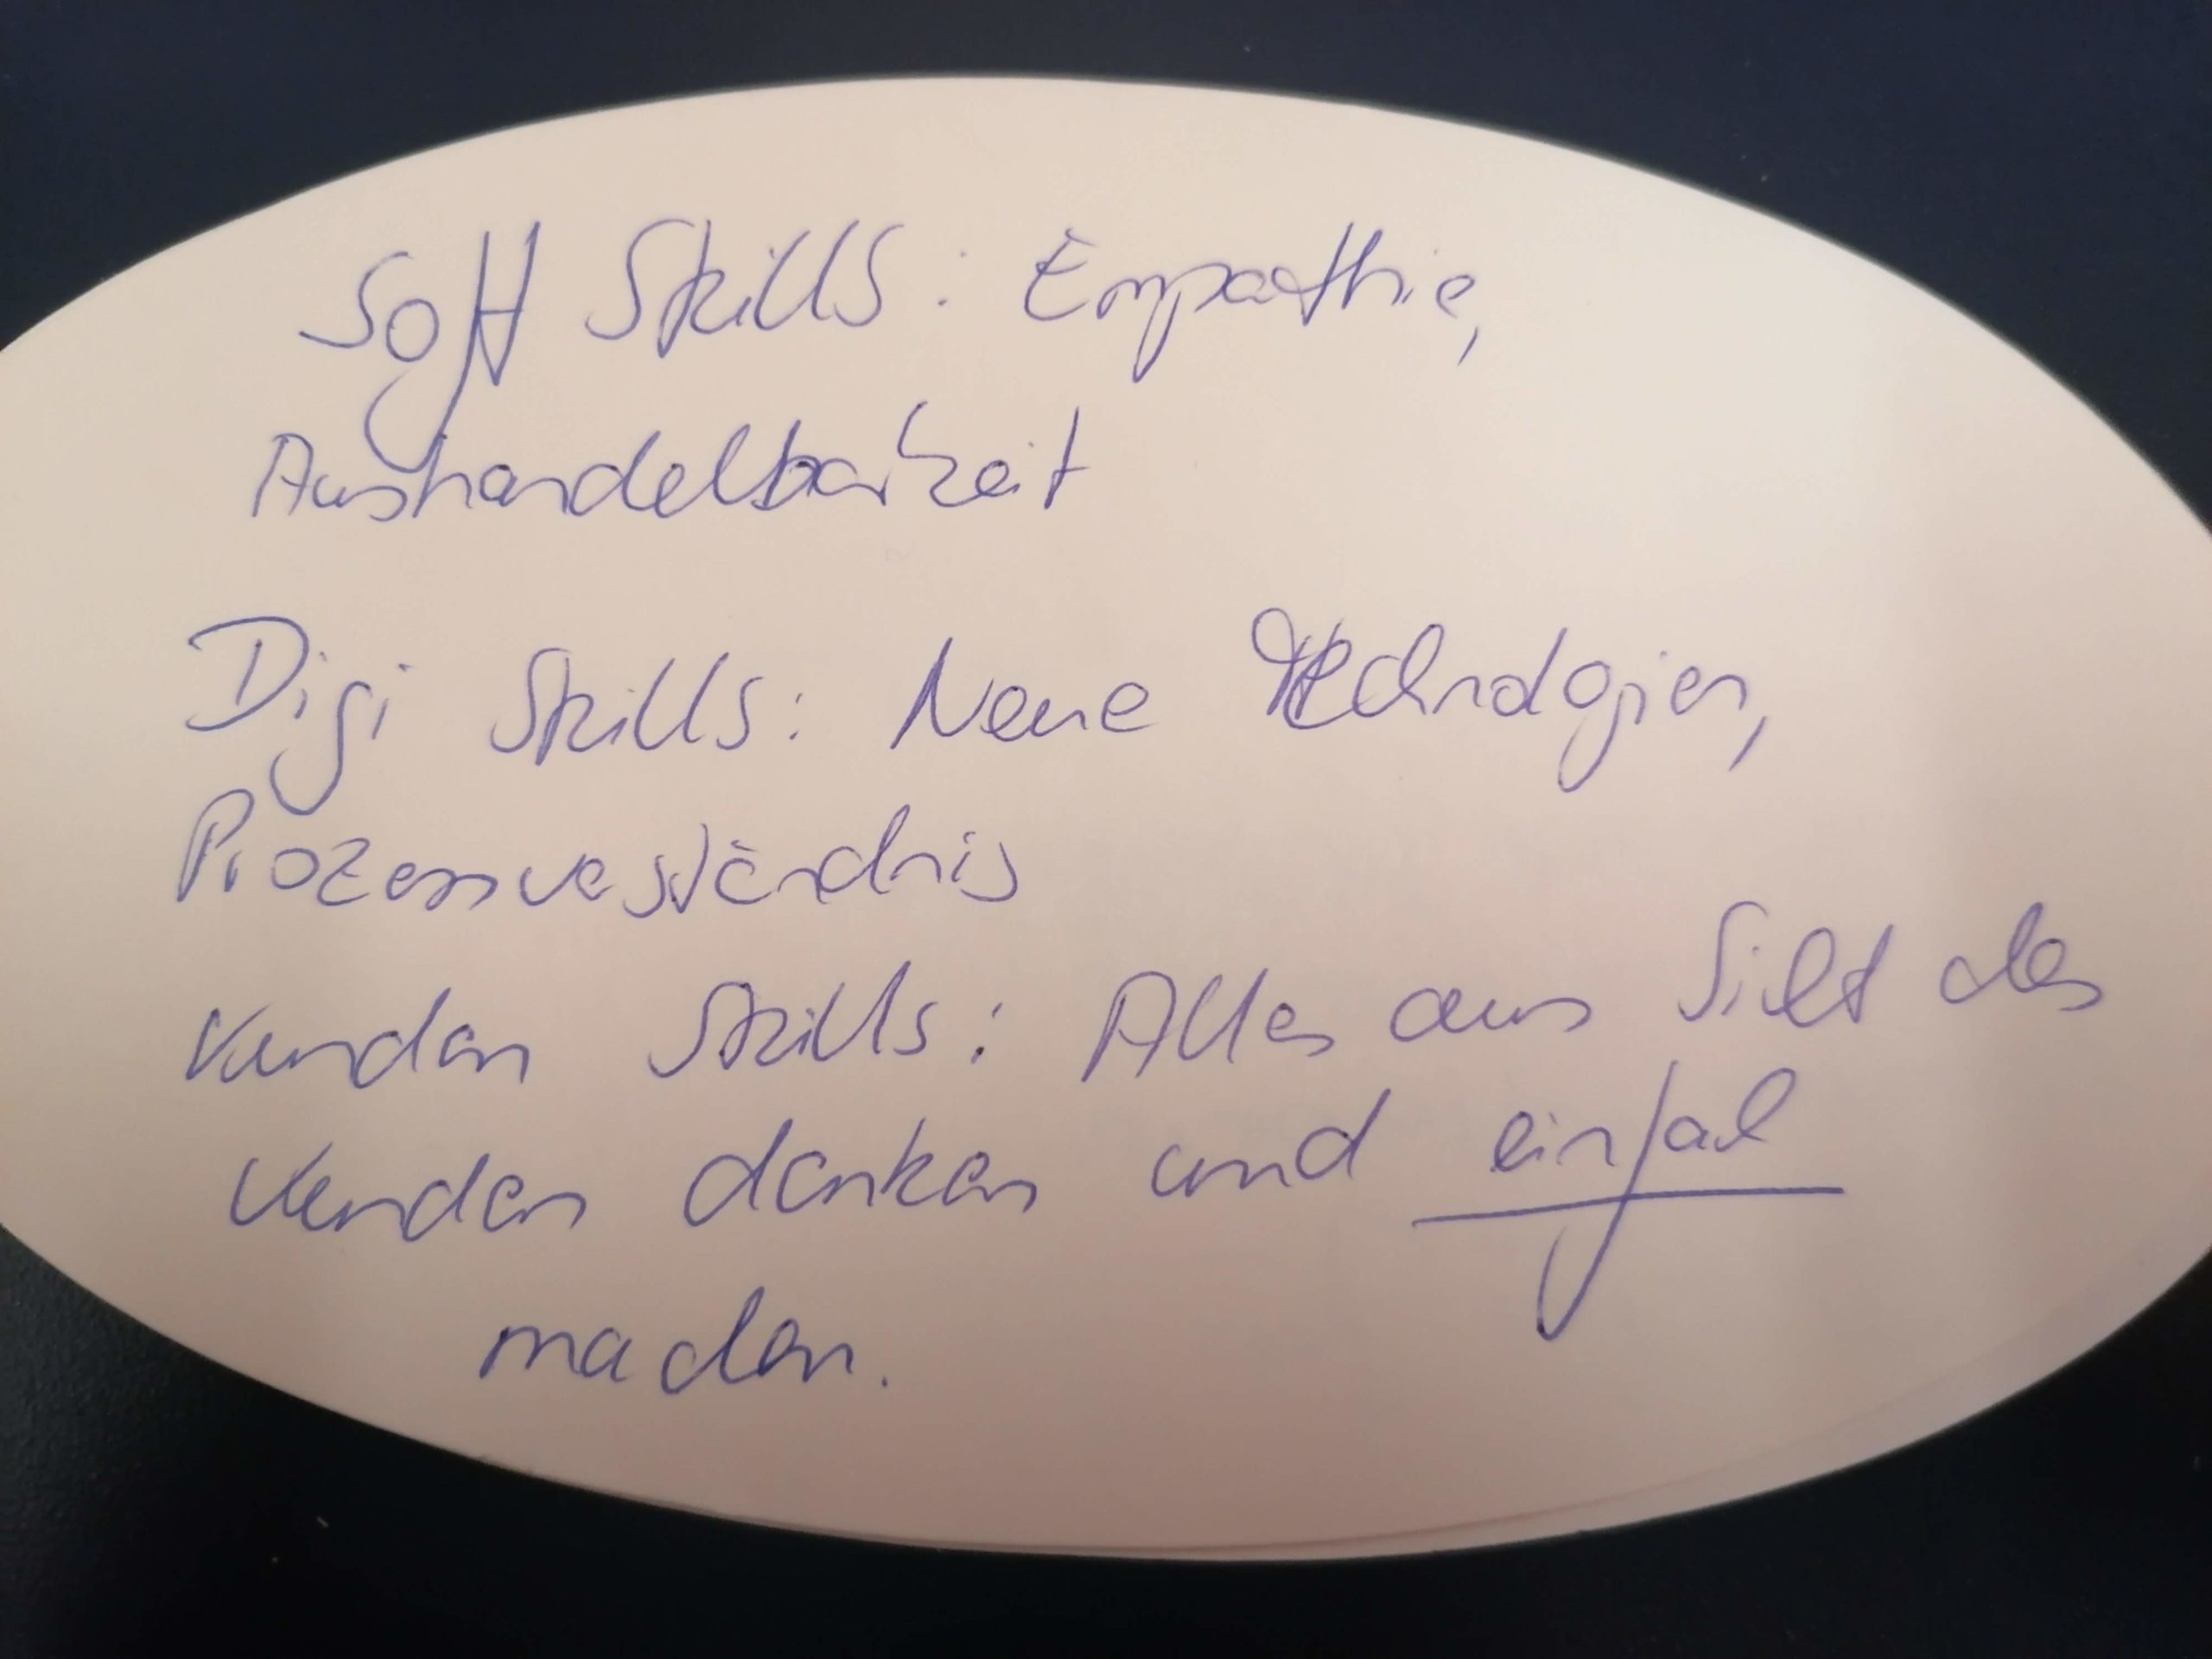 Soft Skills: Empathie,
Aushandelbarkeit
Digi Skills: Neue Technologien,
Prozessverständnis
Kunden Skills: Alles aus Sicht des
Kunden denken und einfach
machen.